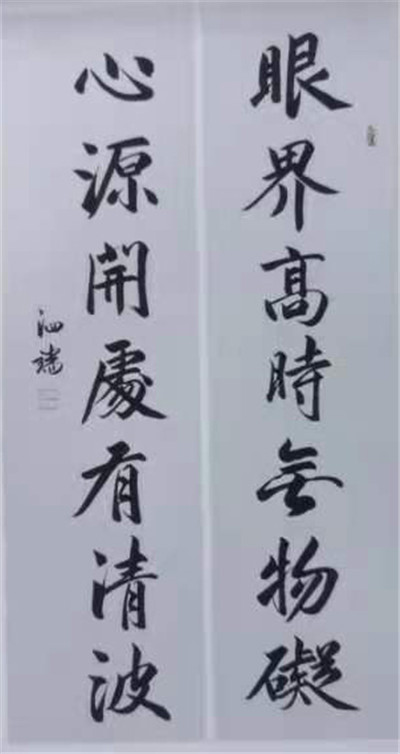 眼界高時無物礙
心源開處有清波